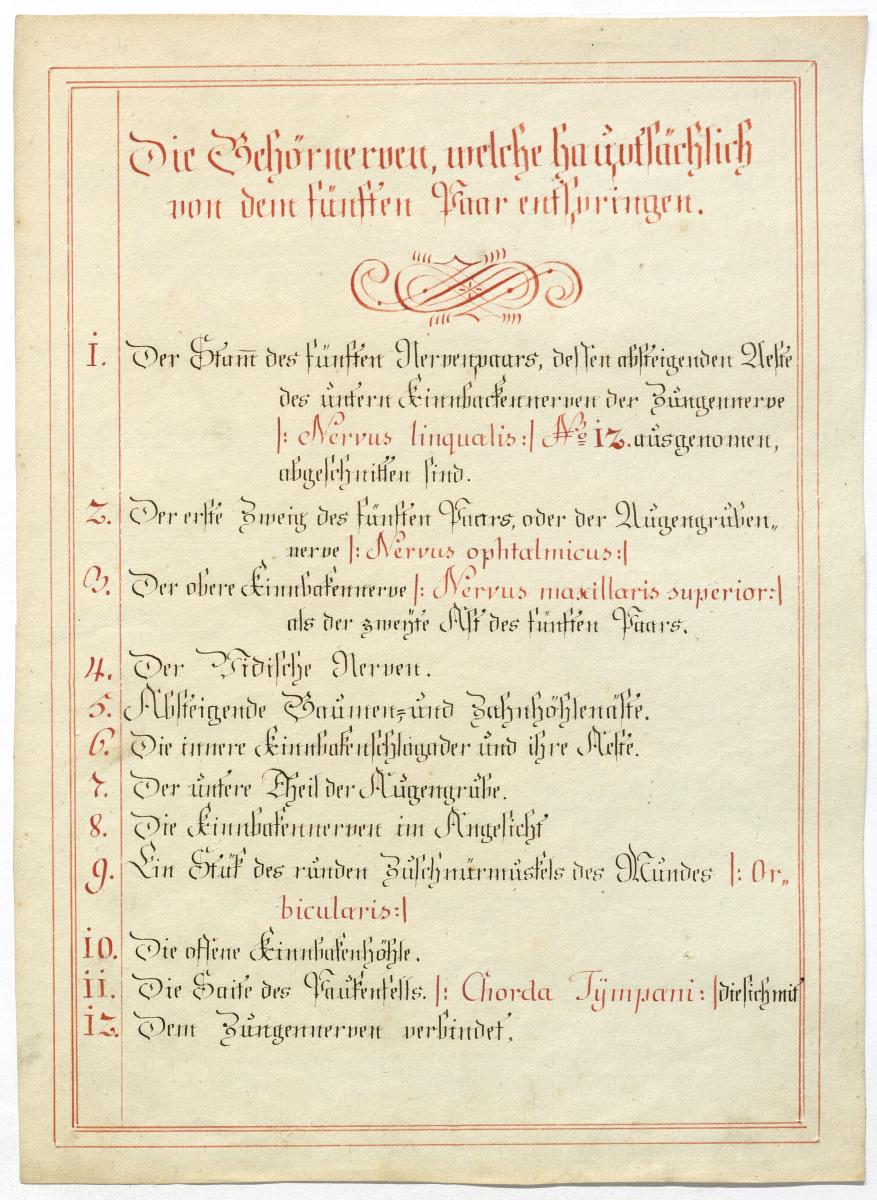 Die Gehörnerven, welche hauptsächlich
von dem fünften Paar entspringen.
1. Der Stam̅ des fünften Nervenpaars, dessen absteigenden Aeste
des untern Kinnbackennerven der Zungennerve
|: Nervus linqualis:| No 12. ausgenomen,
abgeschnitten sind.
2. Der erste Zweig des fünften Paars, oder der Augengruben„
nerve |: Nervus ophtalmicus:|
3. Der obere Kinnbakennerve |: Nervus maxillaris superior:|
als der zweÿte Ast des fünften Paars.
4. Der Vidische Nerven.
5. Absteigende Gaumen= und Zahnhöhlenäste.
6. Die innere Kinnbakenschlagader und ihre Aeste.
7. Der untere Theil der Augengrube.
8. Die Kinnbakennerven im Angesicht
9. Ein Stük des runden Zuschnürmuskels des Mundes |: Or„
bicularis:|
10. Die offene Kinnbakenhöhle.
11. Die Saite des Paukenfells. |: Chorda Tÿmpani: | die sich mit
12. Dem Zungennerven verbindet.